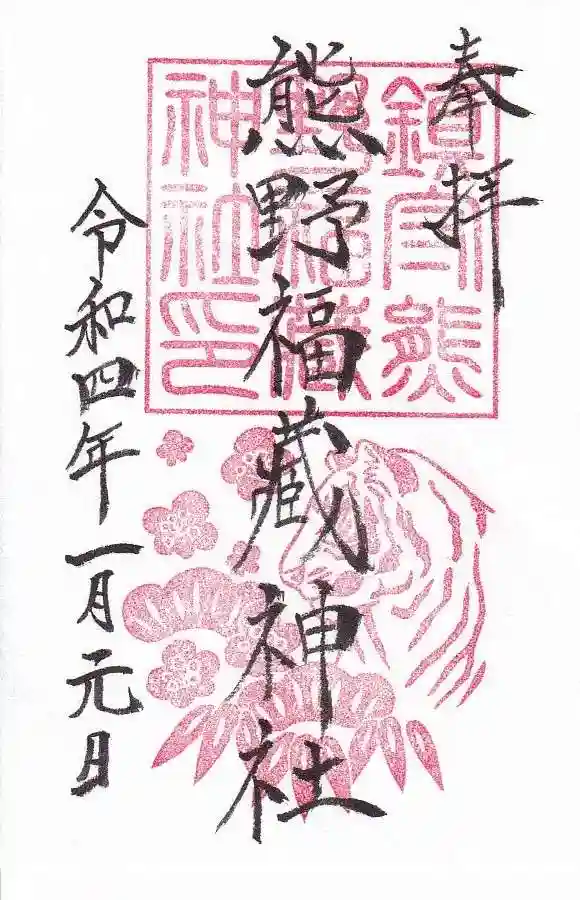 奉拝
熊野福蔵神社
令和四年一月元日
鎮官熊
野福蔵
神社印